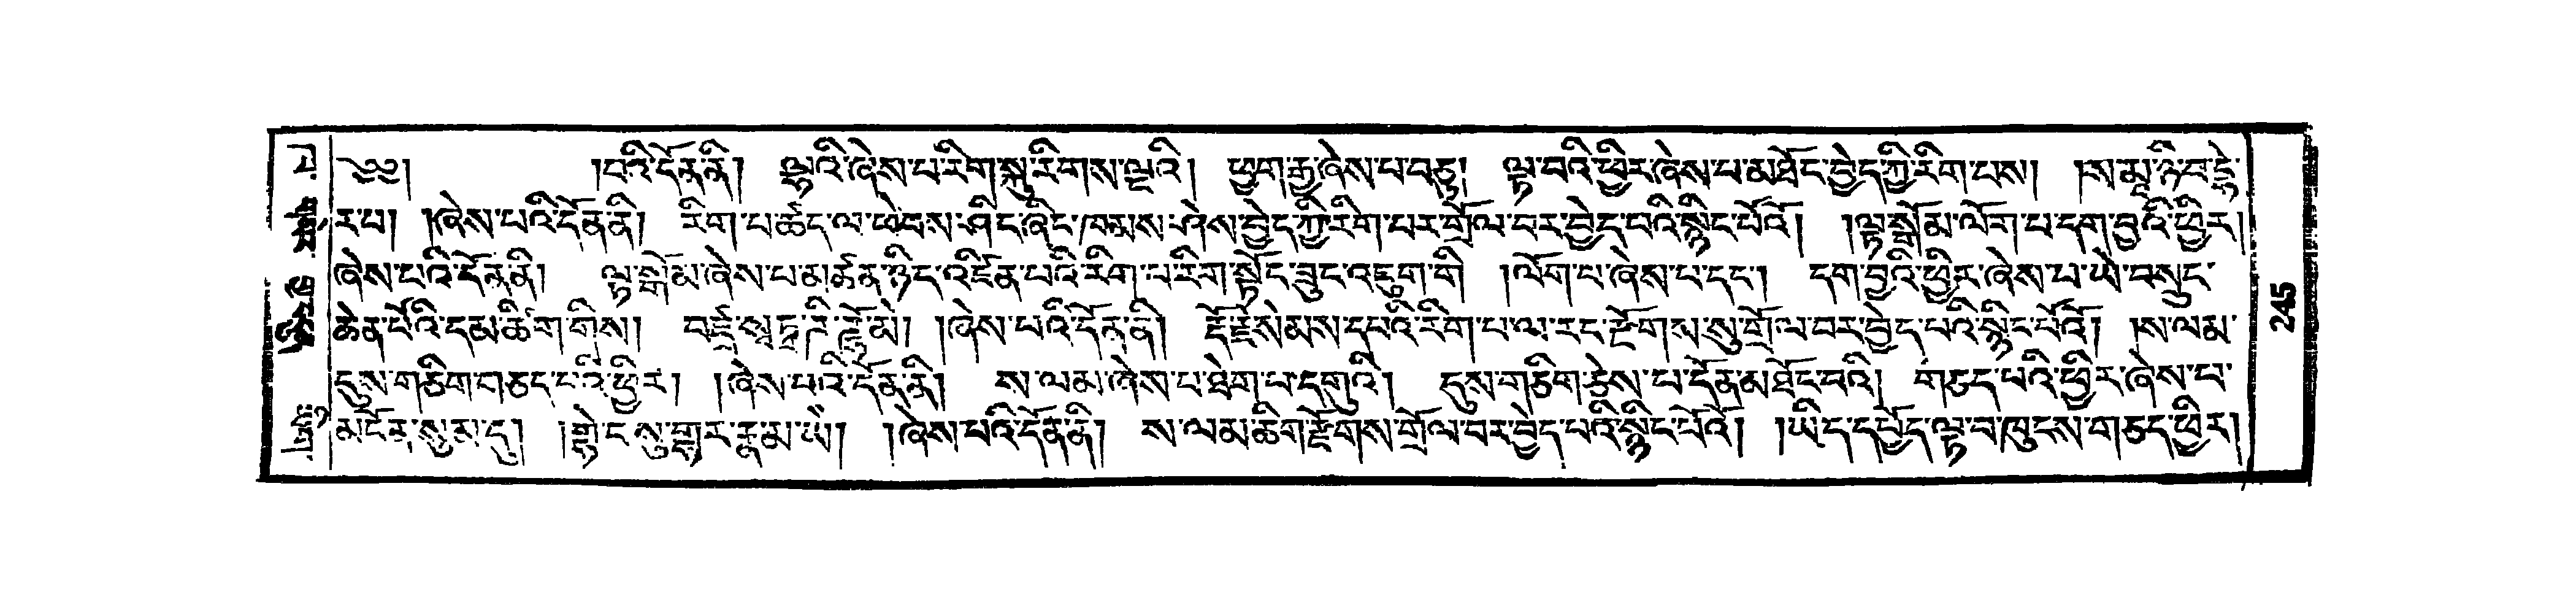 ༄༅། །བའི་དོན་ནི། ལྟའི་ཞེས་པ་རིག་སྐུ་རིགས་ལྔའི། ཕྱག་རྒྱ་ཞེས་པ་བཅུ། ལྟ་བའི་ཕྱིར་ཞེས་པ་མཐོང་བྱེད་ཀྱི་རིག་པས། །ས་མཱ་ཉི་བ་དྷེ་
ར་པ། །ཞེས་པའི་དོན་ནི། རིག་པ་ཚད་ལ་ཕེབས་ཤིང་ཞིང་ཁམས་ཤེས་བྱེད་ཀྱི་རིག་པར་གྲོལ་བར་བྱེད་པའི་སྙིང་པོའོ། །ལྟ་སྒོམ་ལོག་པ་དག་བྱའི་ཕྱིར།
ཞེས་པའི་དོན་ནི། ལྟ་སྒོམ་ཞེས་པ་མཚན་ཉིད་འཛིན་པའི་རིག་པ་རིག་སྟོང་ཟུང་འཇུག་གི །ལོག་པ་ཞེས་པ་དང་། དག་བྱའི་ཕྱིར་ཞེས་པ་ཡེ་བསྲུང་
ཆེན་པོའི་དམ་ཚིག་གིས། བཛྲ་སཏྭ་ནི་ཛྙོ་མེ། །ཞེས་པའི་དོན་ནི། རྡོ་རྗེ་སེམས་དཔའི་རིག་པ་ལ་རང་རྫོགས་སུ་གྲོལ་བར་བྱེད་པའི་སྙིང་པོའོ། །ས་ལམ་
དུས་གཅིག་བཅད་པའི་ཕྱིར། །ཞེས་པའི་དོན་ནི། ས་ལམ་ཞེས་པ་ཐེག་པ་དགུའི། དུས་གཅིག་ཅེས་པ་དོན་མཐོང་བའི། གཅད་པའི་ཕྱིར་ཞེས་པ་
མངོན་སུམ་དུ། །གྷེ་ང་སུ་གྷར་ནྷ་མ་ཡེ། །ཞེས་པའི་དོན་ནི། ས་ལམ་ཆིག་རྫོགས་གྲོལ་བར་བྱེད་པའི་སྙིང་པོའོ། །ཡིད་དཔྱོད་ལྟ་བ་ཁུངས་གཅད་ཕྱིར།